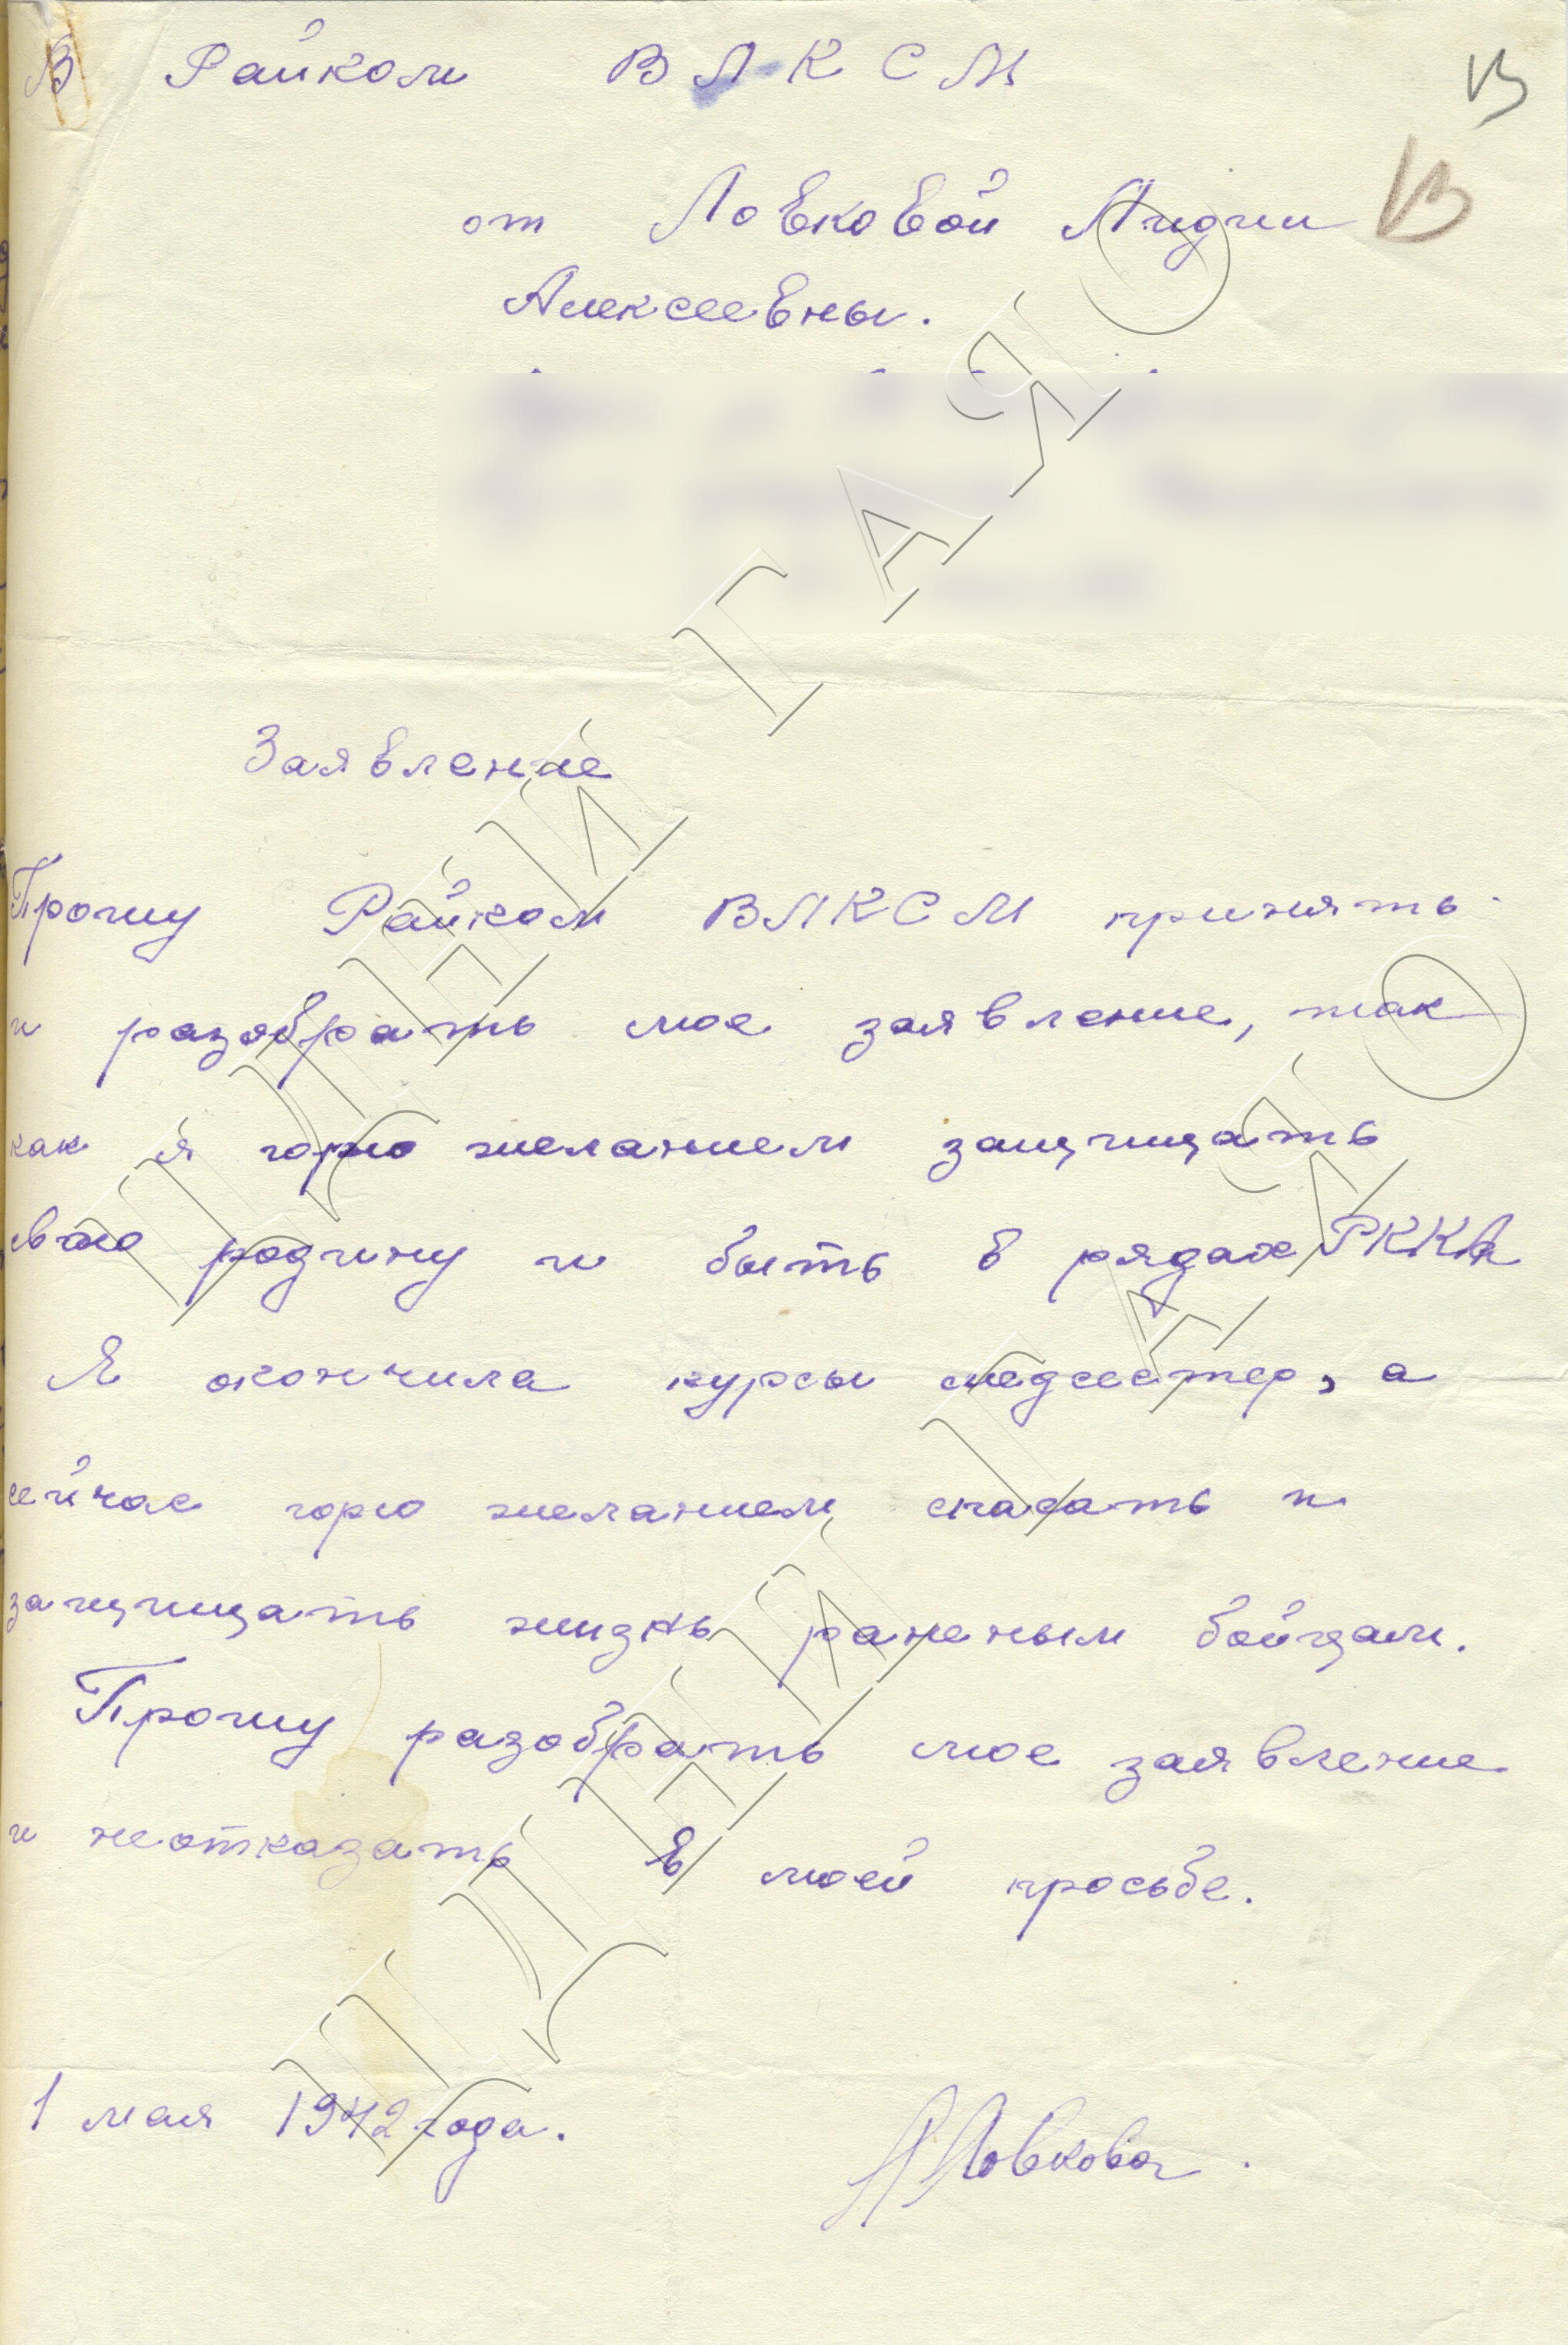 В Райком ВЛКСМ
от Ловковой Лидии
Алексеевны.
Заявление
Прошу Райком ВЛКСМ принять
и разобрать мое заявление, так
как я горю желанием защищать
свою родину и быть в рядах РККА
Я окончила курсы медсестер, а
сейчас горю желанием спасать и
защищать жизнь раненым бойцам.
Прошу разобрать мое заявление
и неотказать в моей просьбе.
1 мая 1942 года.
Л Ловкова.
ЦДНИ ГАЯО
ЦДНИ ГАЯО